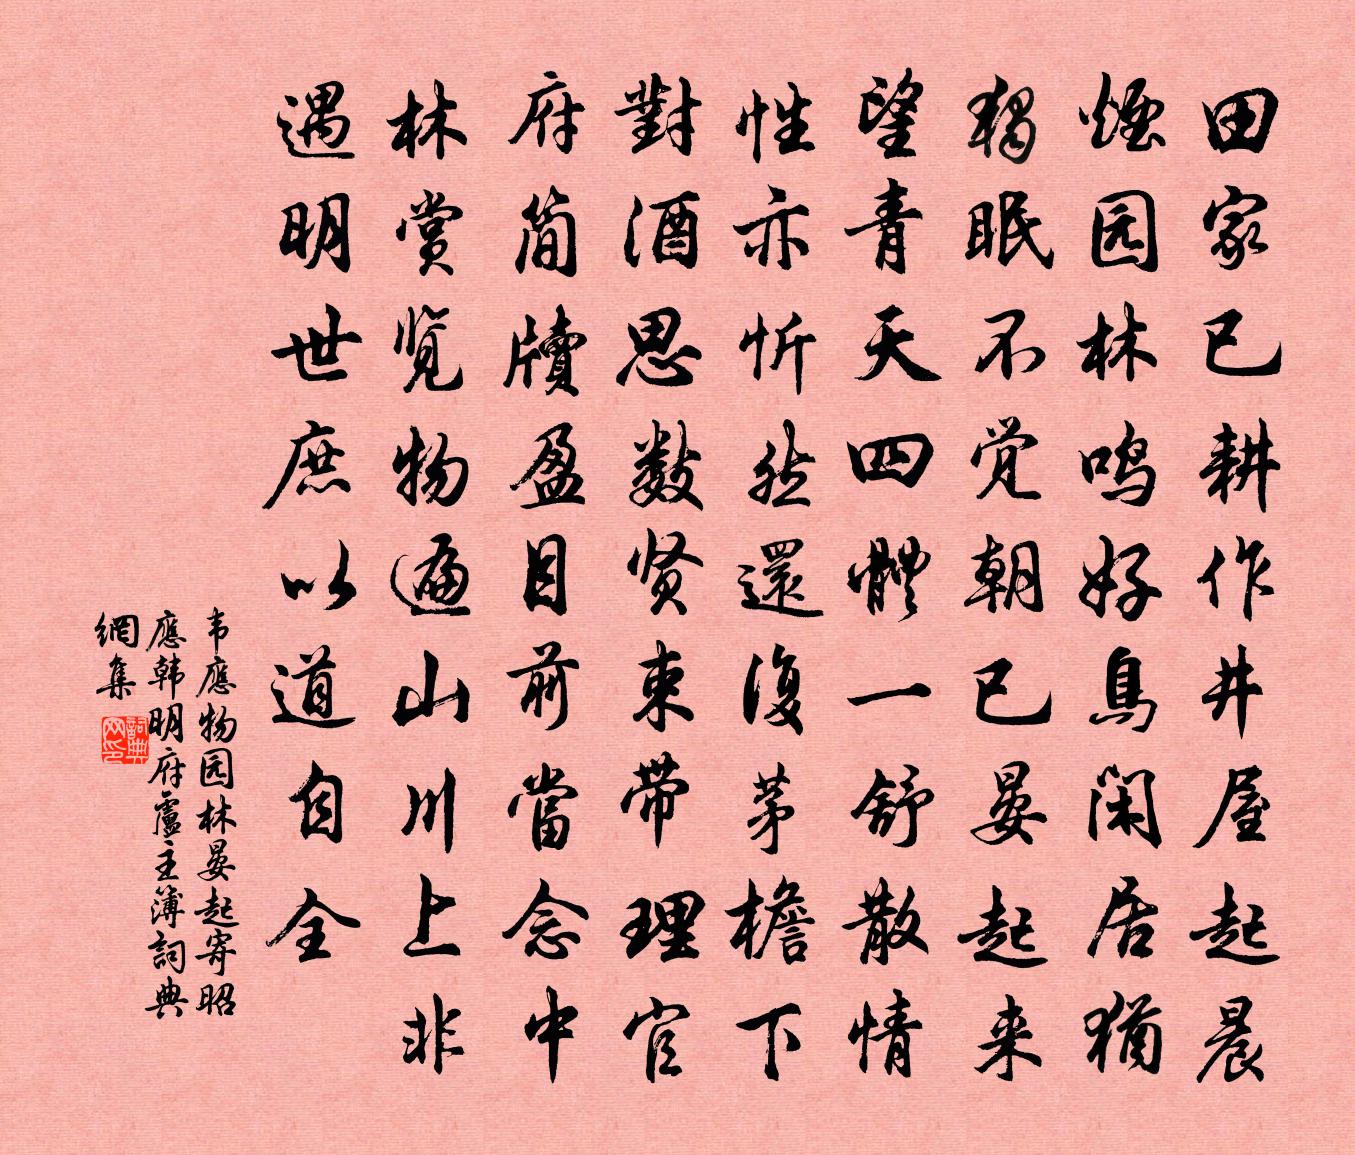 田家已耕作井屋起晨
煙园林鸣好鳥闲居猶
獨眠不觉朝已晏起来
望青天四體一舒散情
性亦忻然還復茅檐下
對酒思數贤束带理官
府简牘盈目前當念中
林赏览物遍山川上非
遇明世庶以道自全
韦應物园林晏起寄昭
應韩明府盧主簿詞典
網集
詞典網印